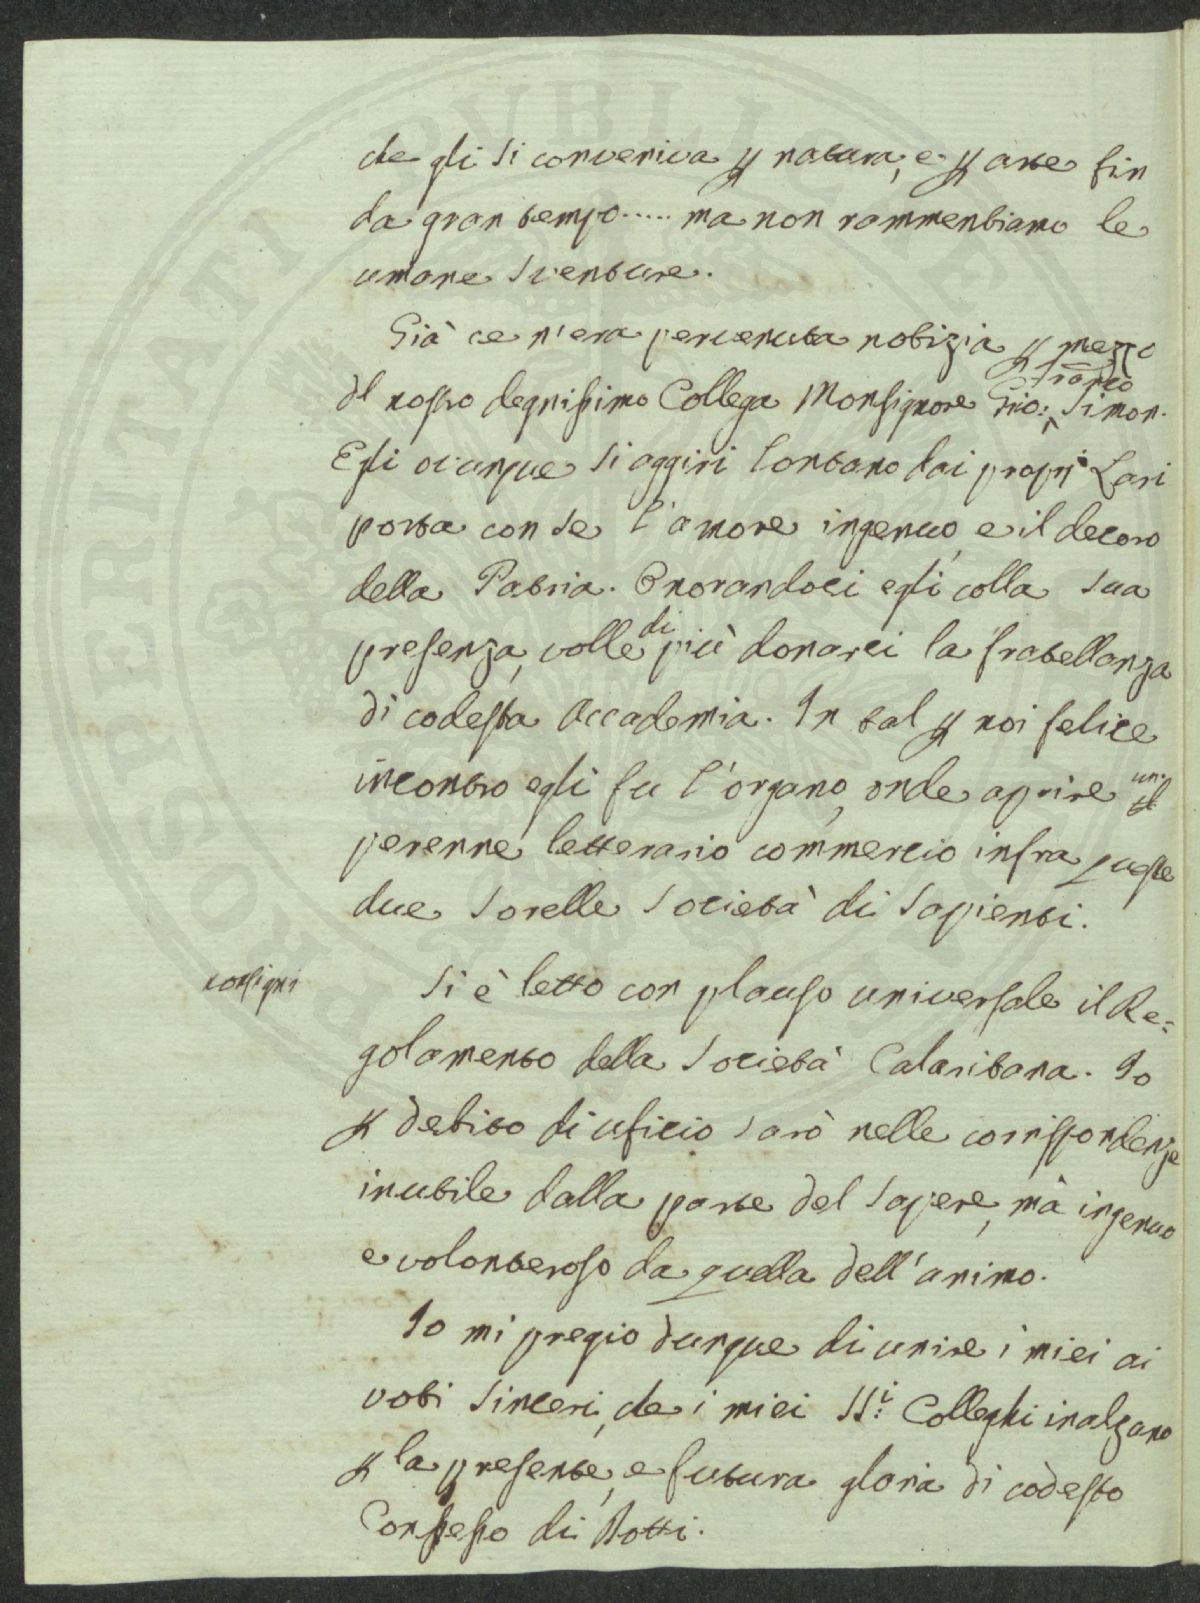 che gli si conveniva p natura, e p arte fin
da gran tempo..... ma non rammentiamo le
umane sventure.
Già ce n'era pervenuta notizia p mezzo
dl nostro degnissimo Collega Monsignore Gio: Franco Simon.
Egli ovunque si aggiri lontano dai proprj Lari
porta con se l'amore ingenuo, e il decoro
della Patria. Onorandoci egli colla sua
presenza, volle di più donarci la fratellanza
di codesta Accademia. In tal p noi felice
incontro egli fu l'organo, onde aprire un
perenne letterario commercio infra queste
due sorelle società di Sapienti.
consigni
Si è letto con plauso universale il Re=
golamento della Società Calaritana. Io
p debito di uficio sarò nelle corrisspondenze
inutile dalla parte del sapere, mà ingenuo
e volonteroso da quella dell'animo.
Io mi pregio dunque di unire i miei ai
voti sinceri, che i miei SS:i Colleghi inalzano
p la presente, e futura gloria di codesto
Consesso di Dotti.
PVBLIC